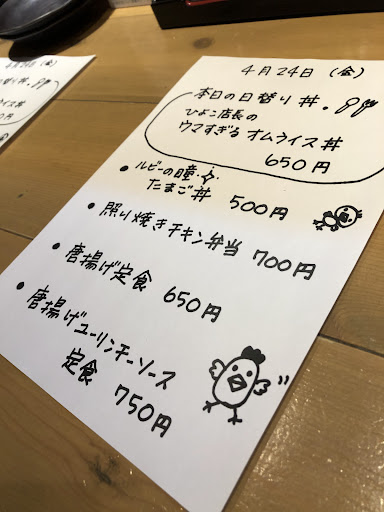 4月24日(金)
本日の日替り丼。
ひよこ店長の
ウマすぎる オムライス丼
650円
• ルビーの瞳
たまご丼 500円
• 照り焼きチキン弁当 700円
• 唐揚げ定食 650円
• 唐揚げユーリンチーソース
定食 750円
4月24日(金)
替り丼。
ライス丼